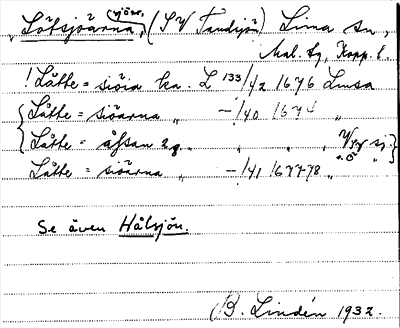 sjöar.
Låtsjöarna, (SV Tandsjö) Lima sn,
Mal. tg, Kopp. l.
! Låtte = siöia ka. L 133/42 1676 Lmsa
Låtte = siöarna " -/40 167 "
Låtte = åssan 2 g. " " "
Låtte = siöarna " -/41 1677-78 "
Se även Hålsjön.
B. Lindén 1932.